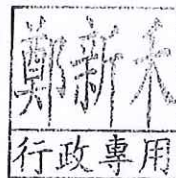 鄭新禾
行政專用